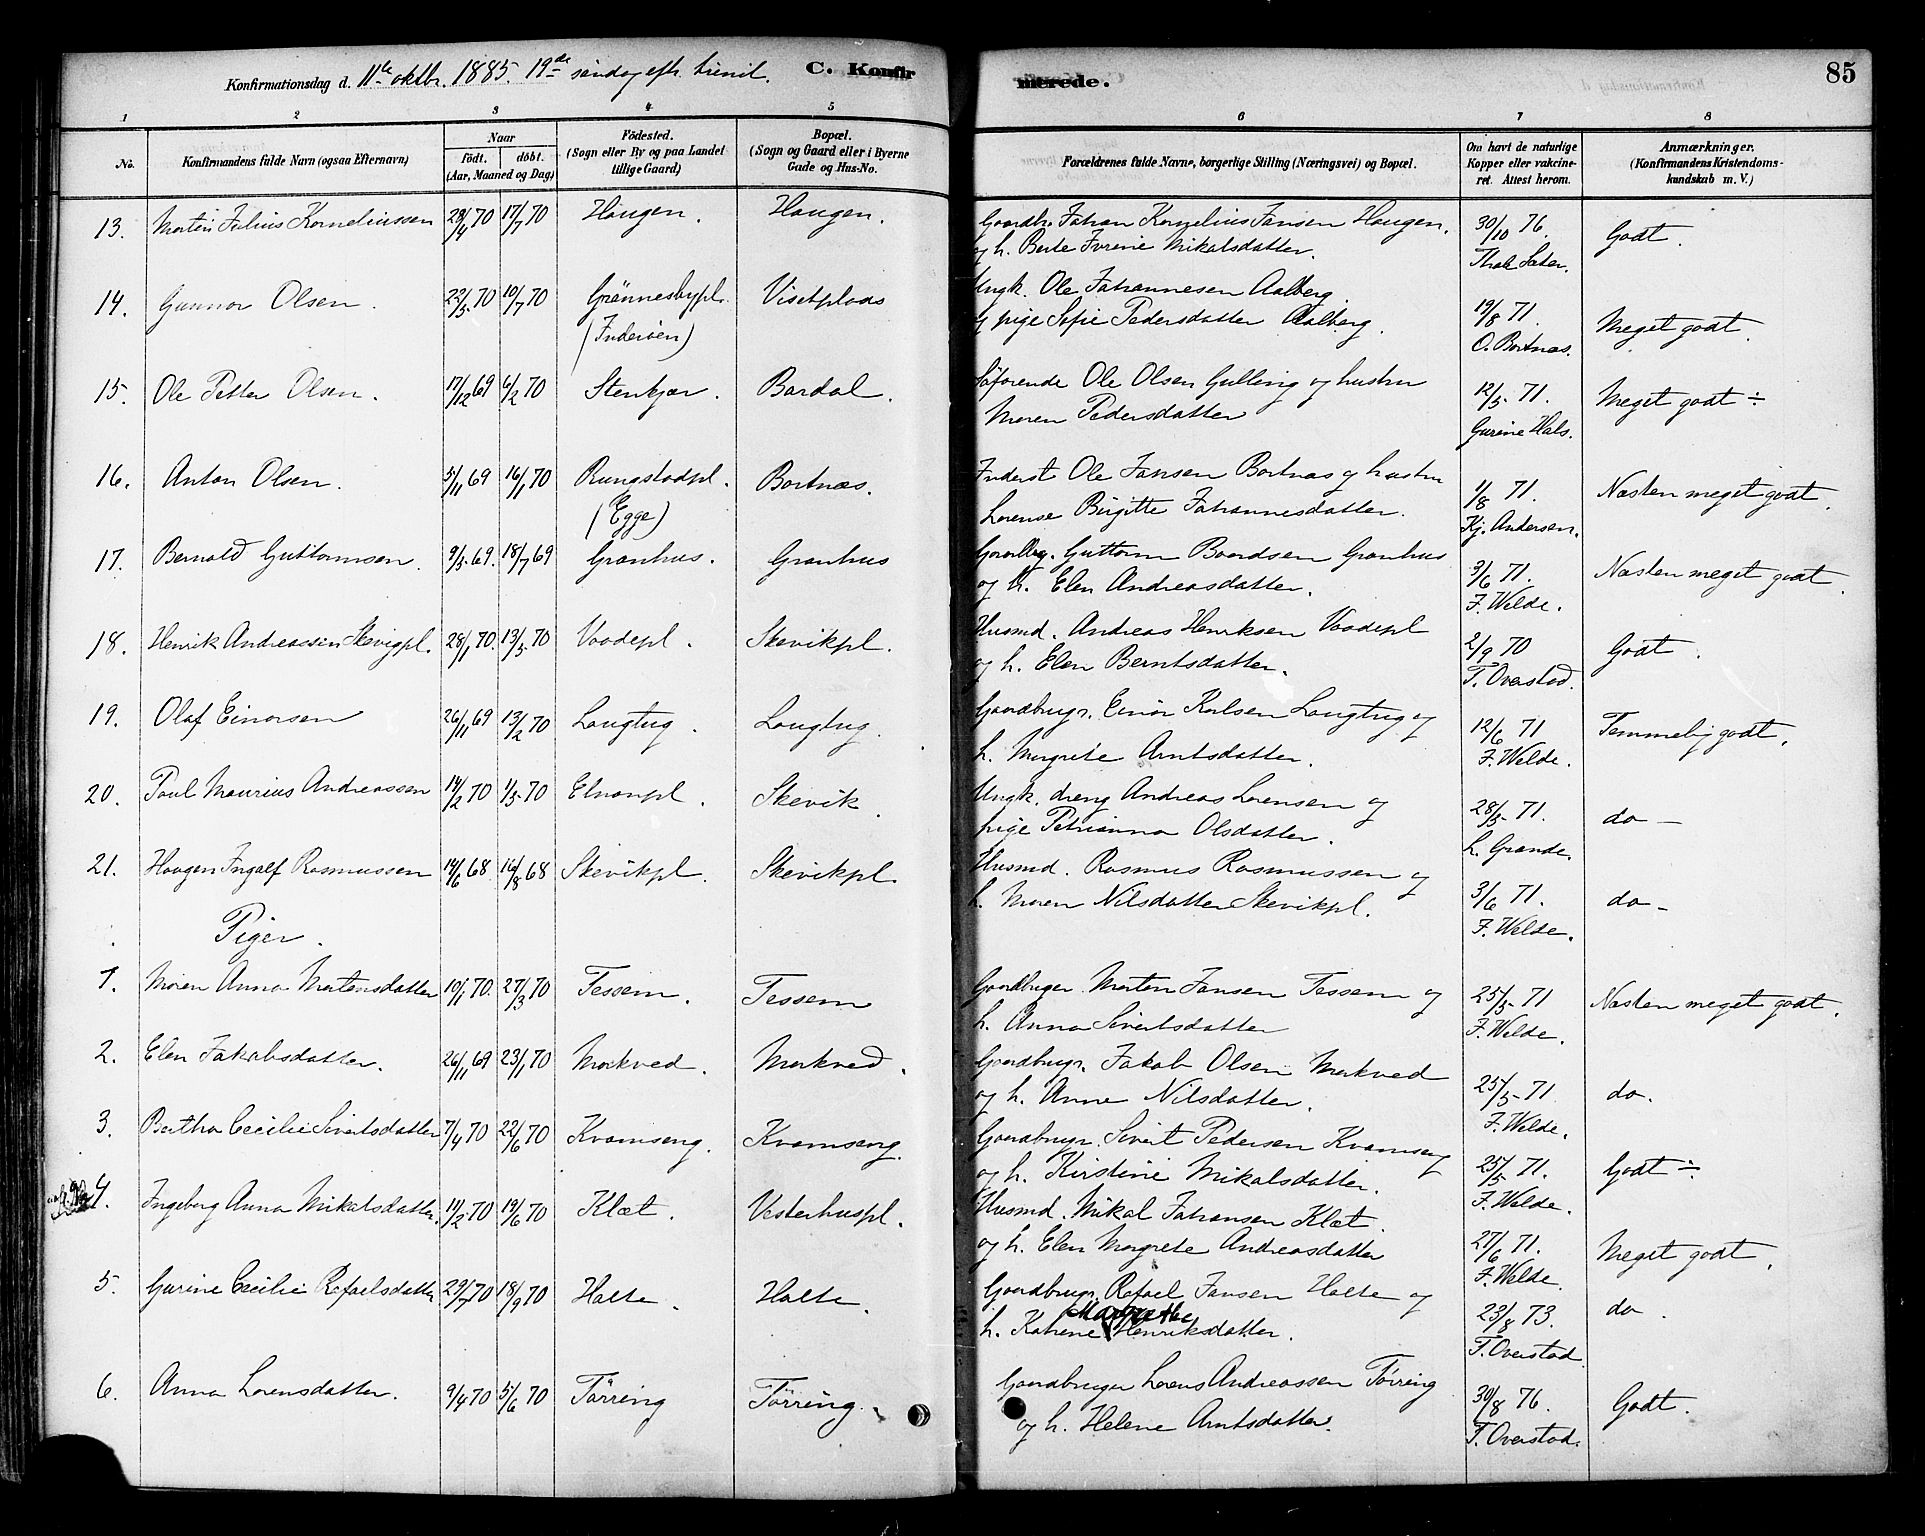 Konfirmationsdag d. 11te oktbr. 1885. 19de søndag efter trinit. C. Konfirmerede. 85
1 2 3 4 5 6 7 8
No. Konfirmandens fulde Navn (ogsaa Efternavn) Naar födt. döbt. (Aar, Maaned og Dag) Födested. (Sogn eller By og paa Landet tillige Gaard) Bopæl. (Sogn og Gaard eller i Byerne Gade og Hus-No. Forældrenes fulde Navne, borgerlige Stilling (Næringsvei) og Bopæl. Om havt de naturlige Kopper eller vakcineret. Attest herom. Anmærkninger. (Konfirmandens Kristendomskundskab m. V.)
13. Morten Julius Korneliussen 29/4 70 17/7 70 Haugen. Haugen. Gaardbr. Johan Kornelius Jansen Haugen. 30/10 76. Godt.
og h. Berte Jvrine Mikalsdatter. Thale Sater.
14. Gunnar Olsen. 22/5 70 10/7 70 Grønnesbypl. (Inderøen) Visetplads Ungk. Ole Johannesen Aalberg 19/8 71. Meget godt.
og pige Sofie Pedersdatter Aalberg. O. Bortnæs.
15. Ole Petter Olsen. 17/12 69 6/2 70 Stenkjær. Bardal. Søfarende Ole Olsen Gulling og hustru 12/5 71. Meget godt ÷
Maren Pedersdatter Gurine Hals.
16. Anton Olsen. 5/11 69 16/1 70 Rungstadpl. (Egge) Bortnæs. Inderst Ole Jansen Bortnæs og hustru 1/8 71. Næsten meget godt.
Lorense Birgitte Johannesdatter. Kj. Andersen.
17. Bernald Guttormsen. 9/5 69. 18/7 69 Granhus. Granhus Gaardbrg. Guttorm Baardsen Granhus 3/6 71. Næsten meget godt.
og h. Elen Andreasdatter. F. Welde.
18. Henrik Andreassen Skevigpl. 28/1 70. 13/3 70 Vaadepl. Skevikpl. Husmd. Andreas Henriksen Vaadepl 2/9 70 Godt.
og h. Elen Berntsdatter. T. Overstad.
19. Olaf Einorsen 26/11 69 13/2 70 Langtug. Langtug. Gaardbrugr. Einor Karlsen Langtug og 12/6 71 Temmelig godt.
h. Margrete Arntsdatter. F. Welde.
20. Paul Maurius Andreassen 14/2 70 1/5 70 Elvanpl. Skevik. Ungk. dreng Andreas Lorensen og 28/5 71. do —
pige Petrianna Olsdatter. L. Grande.
21. Haagen Ingolf Rasmussen 14/6 68. 16/8 68 Skevikpl. Skevikpl. Husmd. Rasmus Rasmussen og 3/6 71. do —
h. Maren Nilsdatter Skevikpl. F. Welde.
Piger.
1. Maren Anna Mortensdatter 10/1 70. 27/3 70 Tessem. Tessem Gaardbruger Morten Jansen Tessem og 25/5 71 Næsten meget godt.
h. Anna Sivertsdatter F. Welde.
2. Elen Jakobsdatter. 26/11 69 23/1 70 Morkved. Morkved. Gaardbrugr. Jakob Olsen Morkved 25/5 71 do.
og h. Anne Nilsdatter. F. Welde.
3. Bertha Cecilie Sivertsdatter 7/4 70 22/6 70 Kvamseng. Kvamseng. Gaardbrugr. Sivert Pedersen Kvamseng 25/5 71. Godt ÷
og h. Kirstine Mikalsdatter. F. Welde.
4. Ingeborg Anna Mikalsdatter. 11/2 70 19/6 70 Klæt. Vesterhuspl. Husmd. Mikal Johansen Klæt. 27/6 71. Meget godt.
og h. Elen Margrete Andreasdatter F. Welde.
5. Gurine Cecilie Rafaelsdatter 29/7 70 18/9 70 Halte. Halte. Gaardbrugr. Rafael Jansen Halte og 23/8 73. do.
h. Katrine Margrethe Henriksdatter. T. Overstad.
6. Anna Lorensdatter. 9/4 70 5/6 70 Tørring Tørring. Gaardbruger Lorens Andreassen Tørring 30/8 76. Godt.
og h. Helene Arntsdatter. T. Overstad.